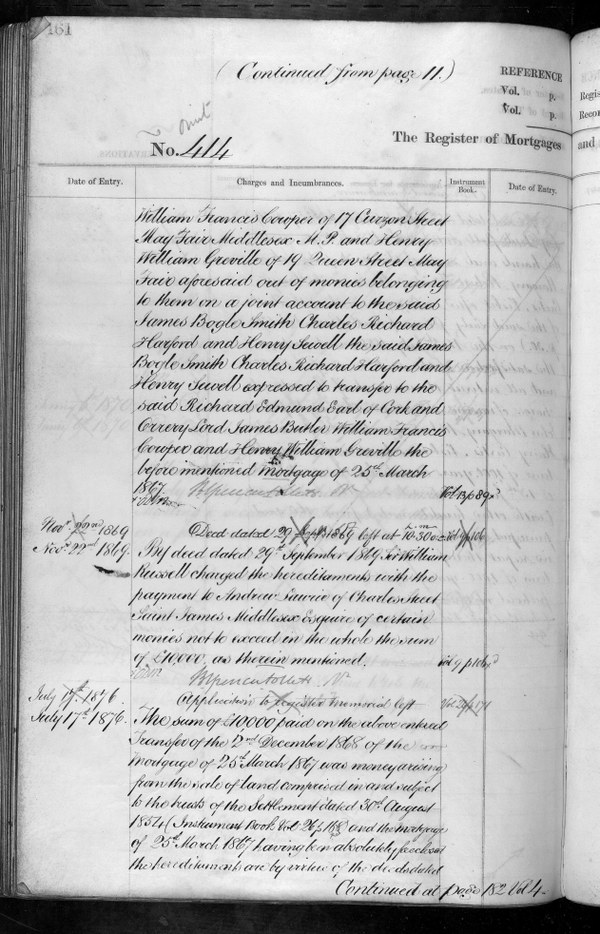 161
(Continued from page 11.)
REFERENCE
Vol. p.
Vol. p.
No. 414
The Register of Mortgages
and
Regis
Recor
Date of Entry.
Charges and Incumbrances.
Instrument Book.
Date of Entry.
William Francis Cowper of 17 Curzon Street
May Fair Middlesex M.P. and Henry
William Greville of 19 Queen Street May
Fair aforesaid out of monies belonging
to them on a joint account to the said
James Bogle Smith Charles Richard
Harford and Henry Sewell the said James
Bogle Smith Charles Richard Harford and
Henry Sewell expressed to transfer to the
said Richard Edmund Earl of Cork and
Orrery Lord James Butler William Francis
Cowper and Henry William Greville the
before mentioned mortgage of 25th March
1867
Vol 13 p 89
Novr 22nd 1869
Deed dated 29 Septr 1869 left at 10.30 am
Novr 22nd 1869.
By deed dated 29th September 1869 Sir William
Russell charged the hereditaments with the
payment to Andrew Lawrie of Charles Street
Saint James Middlesex Esquire of certain
monies not to exceed in the whole the sum
of £10,000, as therein mentioned.
July 17th 1876
Application to register memorial left
July 17th 1876.
The sum of £10,000 paid on the above entered
Transfer of the 2nd December 1868 of the
mortgage of 25th March 1867 was money arising
from the sale of land comprised in and subject
to the trusts of the Settlement dated 30th August
1854 (Instrument Book Vol 26 p 168) and the mortgage
of 25th March 1867 having been absolutely foreclosed
the hereditaments are by virtue of the deeds dated
Continued at page 182 Vol 4.